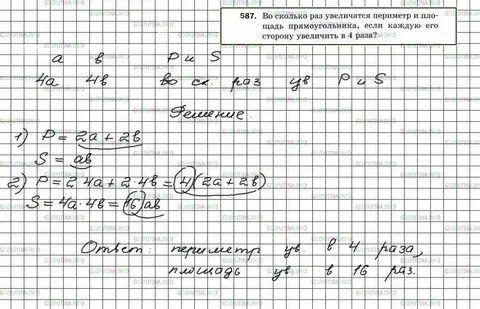 587. Во сколько раз увеличатся периметр и пло-
щадь прямоугольника, если каждую его
сторону увеличить в 4 раза?
a в P и S
4a 4в во ск. раз ув P и S
Решение.
1) P = 2a + 2в
S = aв
2) P = 2·4a + 2·4в = 4(2a + 2в)
S = 4a·4в = 16aв
Ответ: периметр ув. в 4 раза,
площадь ув. в 16 раз.